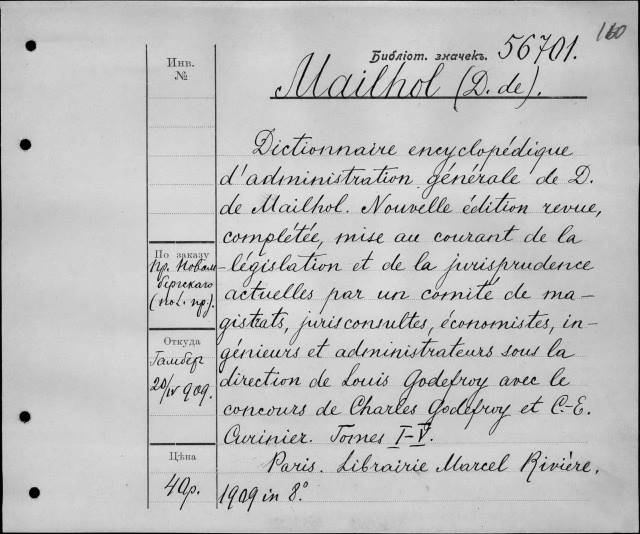 160
Библіот. значекъ. 56701.
Инв.
№
Mailhol (D. de).
Dictionnaire encyclopédique
d'administration générale de D.
de Mailhol. Nouvelle édition revue,
complétée, mise au courant de la
législation et de la jurisprudence
actuelles par un comité de ma-
gistrats, jurisconsultes, économistes, in-
génieurs et administrateurs sous la
direction de Louis Godefroy avec le
concours de Charles Godefroy et C.-E.
Curinier. Tomes I-V.
Paris. Librairie Marcel Rivière.
1909 in 8°.
По заказу
пр. Новом-
бергскаго
(пол. пр.).
Откуда
Гамбер
20/IV 909.
Цѣна
40р.